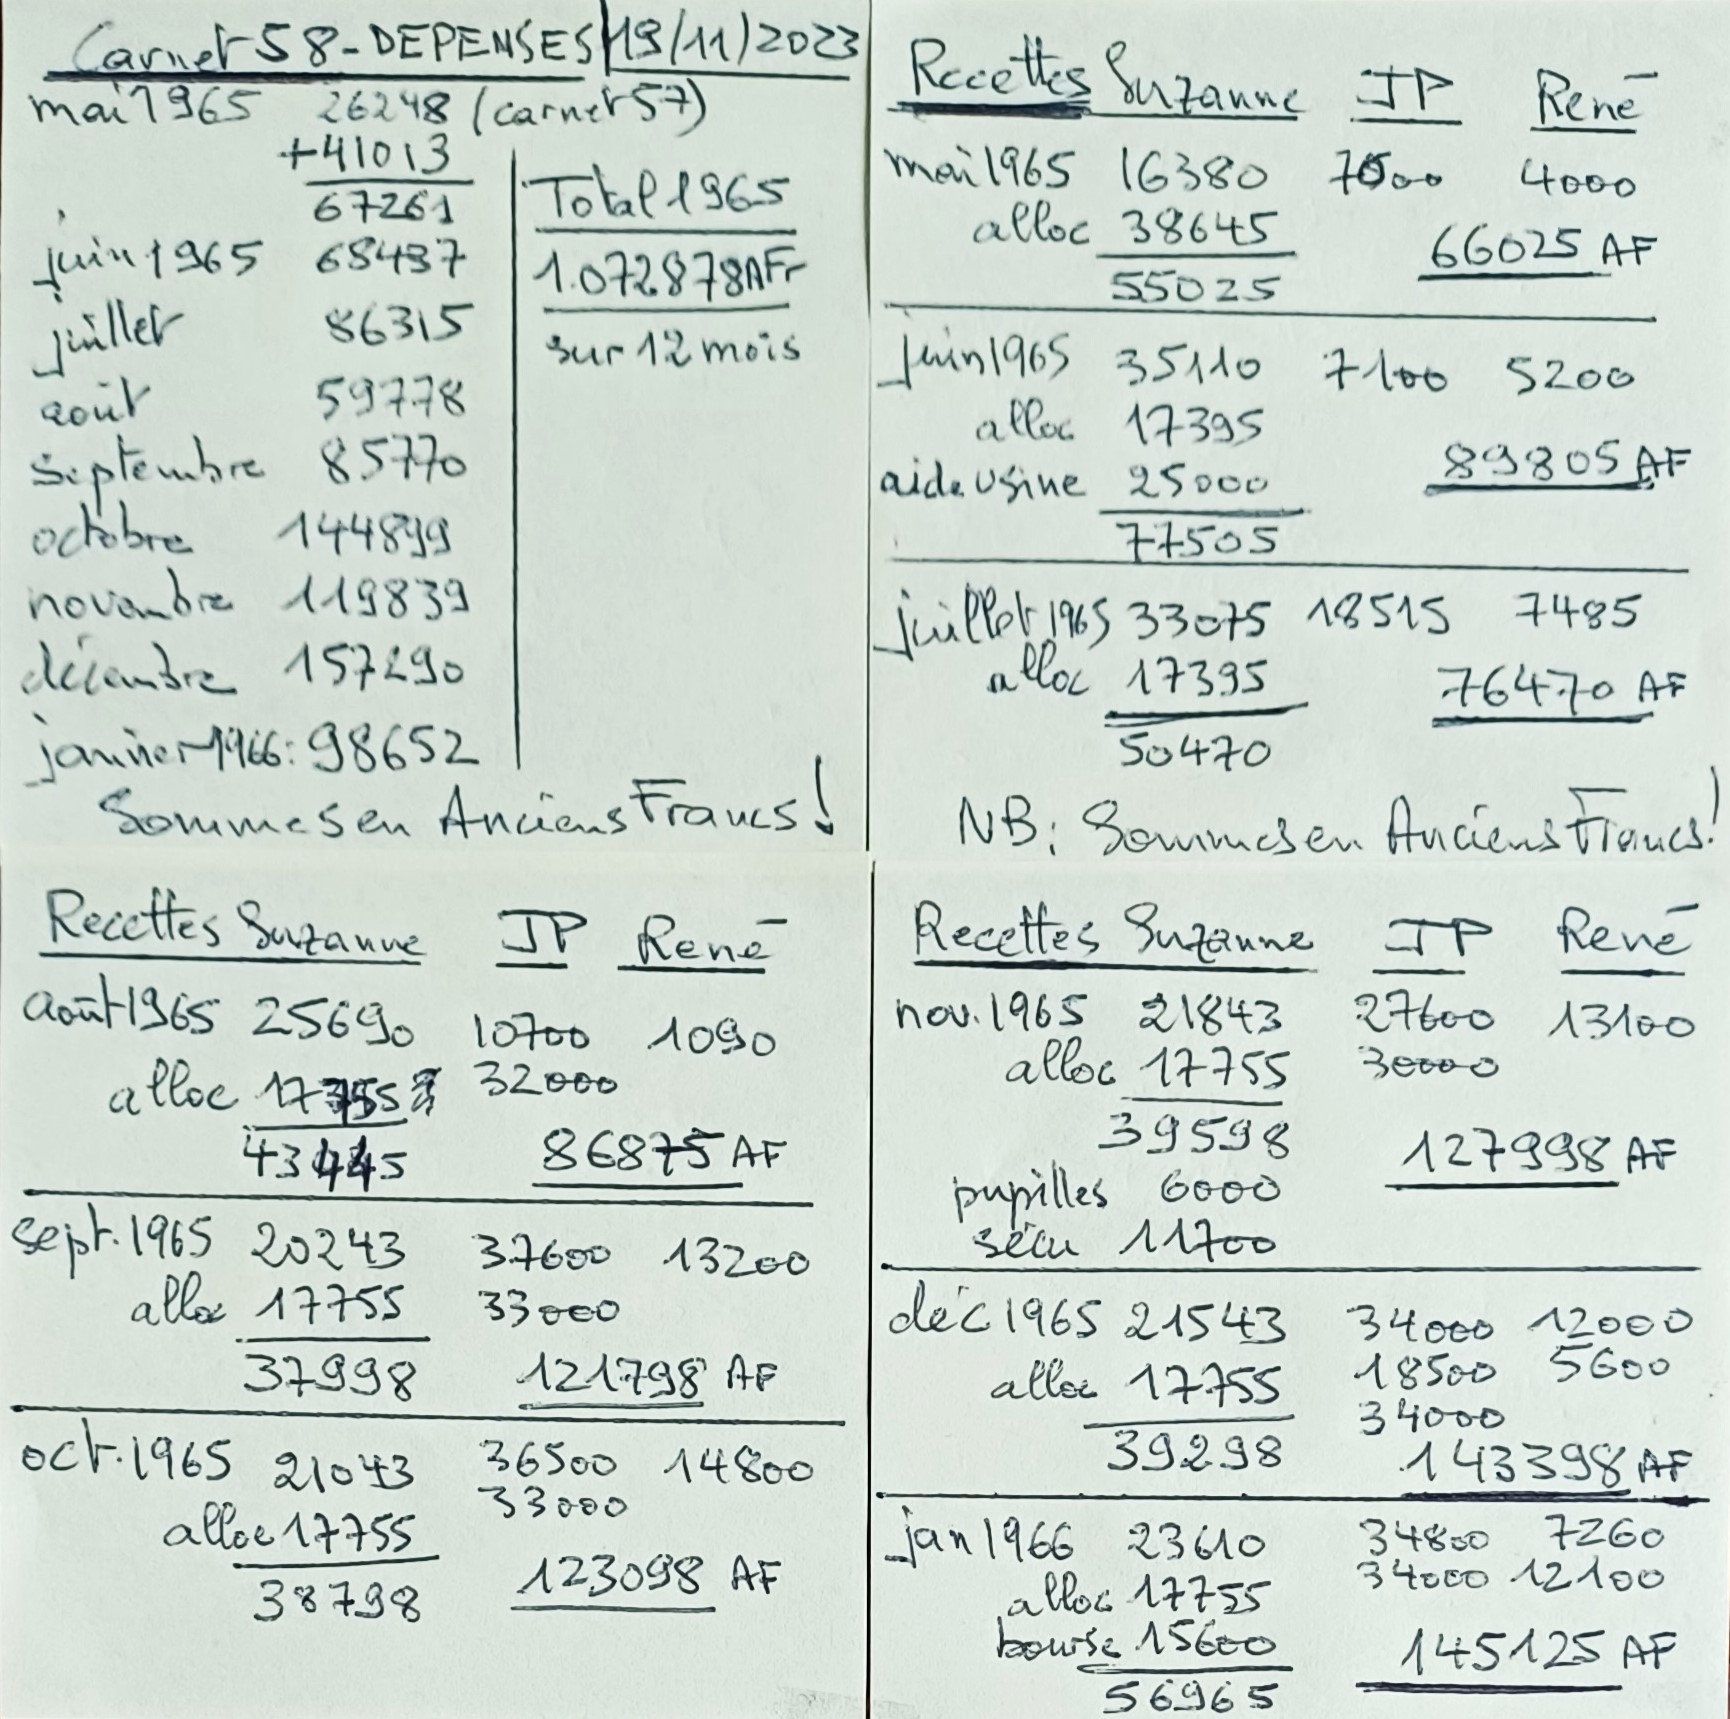 Carnet 58 - DEPENSES 19/11/2023
mai 1965 26248 (carnet 57)
+41013
67261
juin 1965 68437
juillet 86315
août 59778
septembre 85770
octobre 144899
novembre 119839
décembre 157290
janvier 1966: 98652
Total 1965
1.072.878 AFr
sur 12 mois
Sommes en Anciens Francs !
Recettes Suzanne JP René
mai 1965 16380 7000 4000
alloc 38645
66025 AF
55025
juin 1965 35110 7100 5200
alloc 17395
89805 AF
aide usine 25000
77505
juillet 1965 33075 18515 7485
alloc 17395
76470 AF
50470
NB: Sommes en Anciens Francs !
Recettes Suzanne JP René
août 1965 25690 10700 1090
alloc 17755 32000
43445 86875 AF
sept. 1965 20243 37600 13200
alloc 17755 33000
37998 121798 AF
oct. 1965 21043 36500 14800
33000
alloc 17755
38798 123098 AF
Recettes Suzanne JP René
nov. 1965 21843 27600 13100
alloc 17755 30000
39598 127998 AF
pupilles 6000
sécu 11700
déc 1965 21543 34000 12000
alloc 17755 18500 5600
34000
39298 143398 AF
jan 1966 23610 34800 7260
alloc 17755 34000 12100
bourse 15600 145125 AF
56965